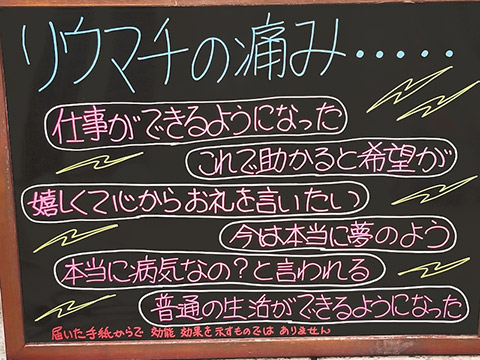 リウマチの痛み・・・・・
仕事ができるようになった
これで助かると希望が
嬉しくて心からお礼を言いたい
今は本当に夢のよう
本当に病気なの?と言われる
普通の生活ができるようになった
届いた手紙からで 効能 効果を示すものでは ありません